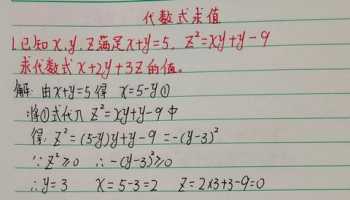 代数式求值
1.已知x,y,z满足x+y=5, z²=xy+y-9
求代数式x+2y+3z的值。
解:由x+y=5得 x=5-y①
将①式代入 z²=xy+y-9 中
得: z²=(5-y)y+y-9=-(y-3)²
∵z²≥0 ∴-(y-3)²≥0
∴y=3 x=5-3=2 z=2×3+3-9=0